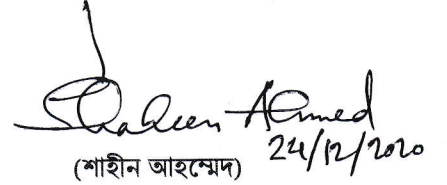 Shaheen Ahmed
24/12/2020
(শাহীন আহম্মেদ)